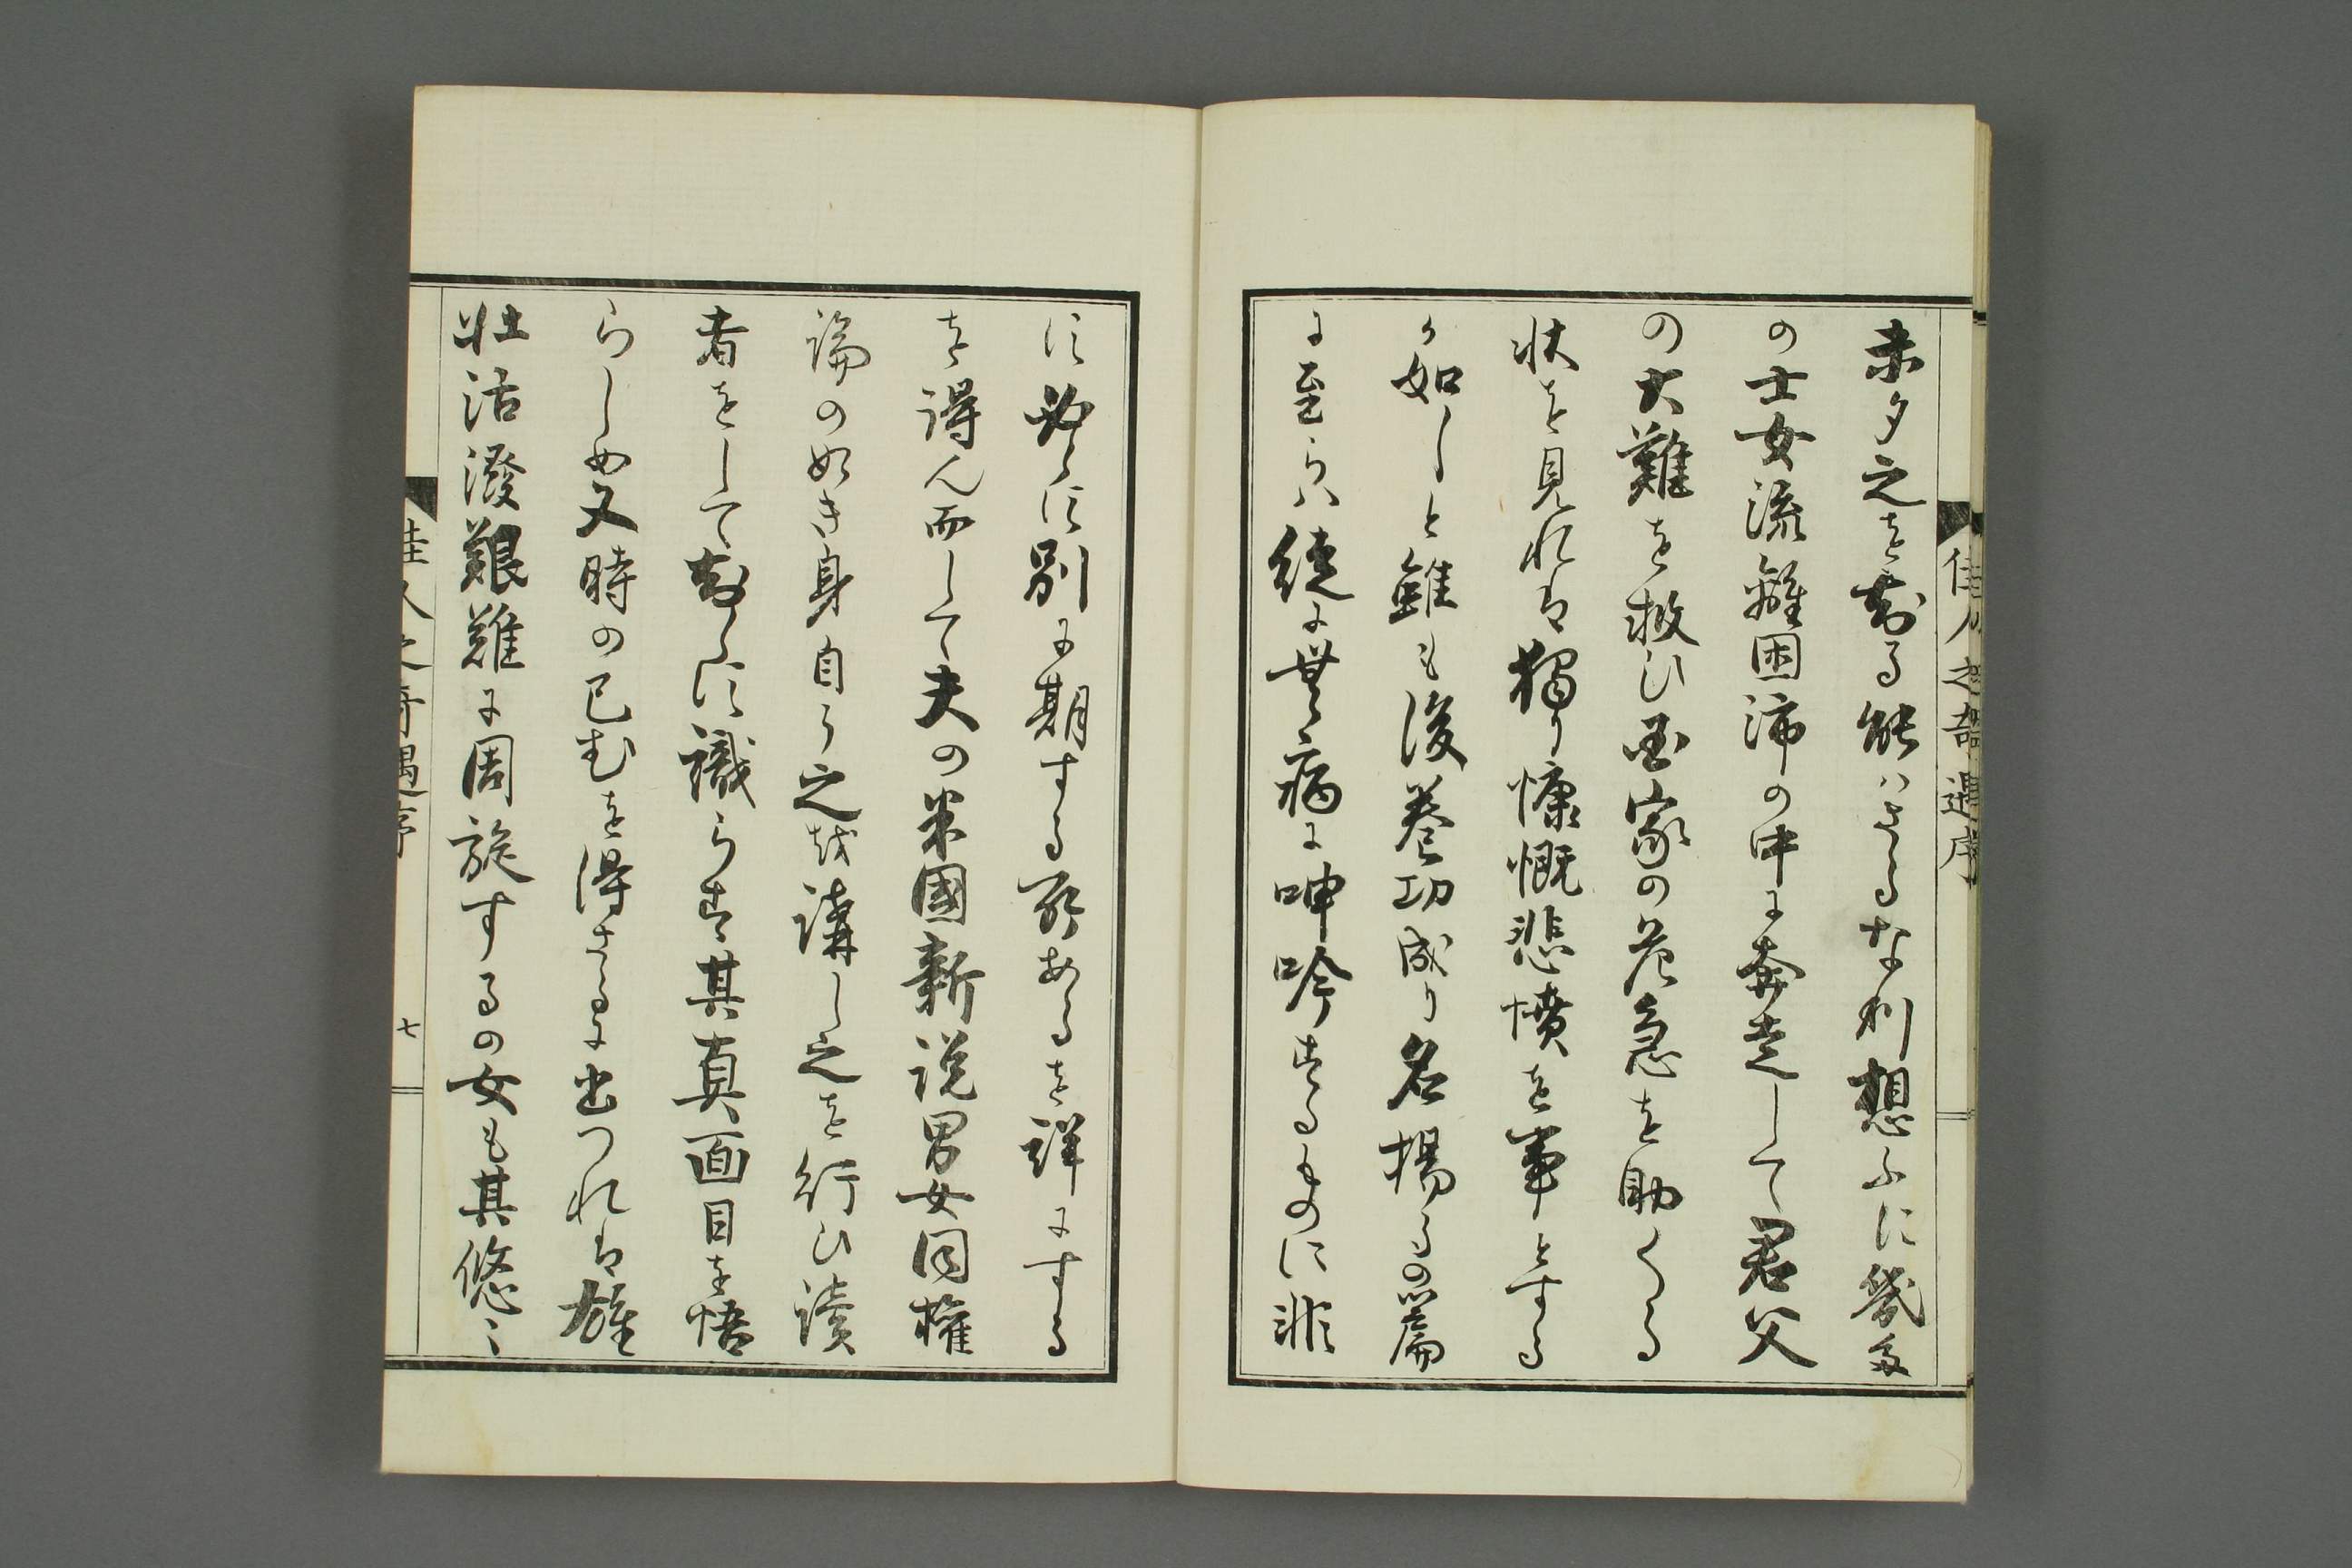 佳人之奇遇序
未タ之を封る能ハさるな利想ふに幾多
の士女流離困沛の中に奔走して君父
の大難を救ひ国家の危急を助くる
状を見れは独り慷慨悲憤を事とする
か如しと雖も後巻功成り名揚るの篇
に至らハ徒に無病に呻吟するものに非
に必に別に期する所あるを詳にする
を得ん而して夫の米國新説男女同権
論の如き身自ら之を講し之を行ひ読
者をして知に識らす其真面目を悟
らしめ又時の已むを得さるに出つれは雄
壮活溌艱難に周旋するの女も其悠〻
佳人之奇遇序
七